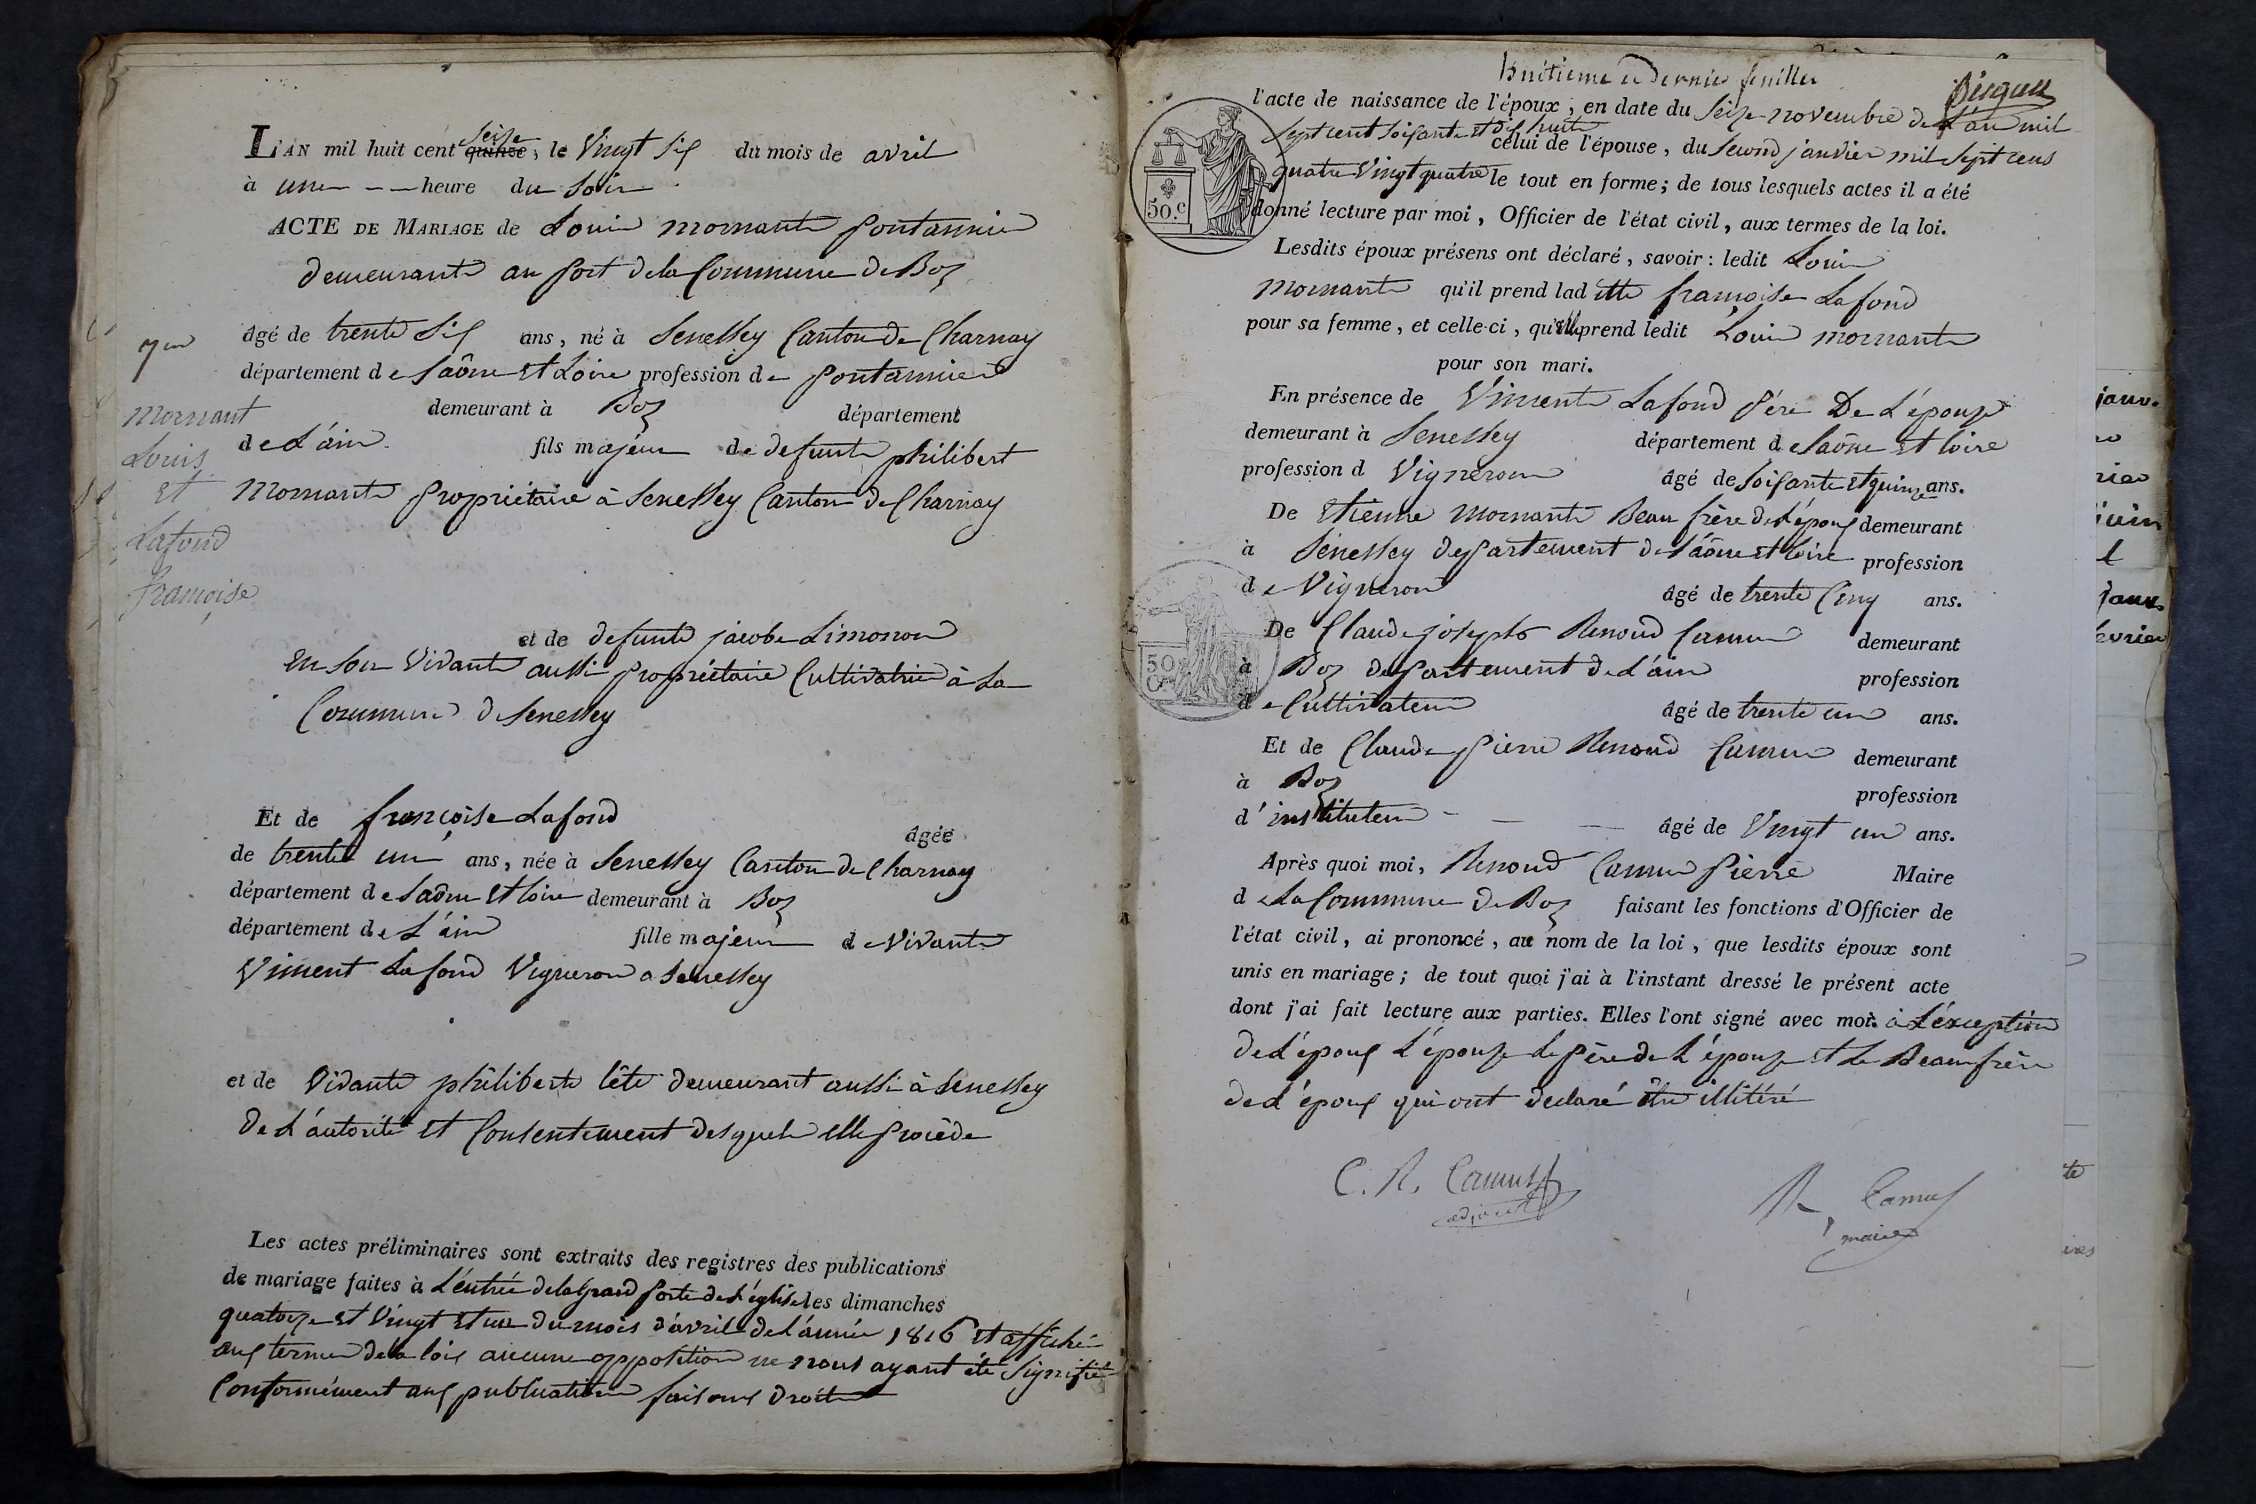 L'AN mil huit cent quinze seize, le Vingt Six du mois de avril
à une - - heure du Soir
ACTE DE MARIAGE de Louis mornant pontannier
demeurant au port de la Commune de Boz
7me
âgé de trente Six ans, né à Senessey Canton de Charnay
département de Saône Et Loire profession de pontannier
demeurant à Boz département
de L'ain fils majeur de defunt philibert
Mornant propriétaire à Senessey Canton de Charnay
Mornant
Louis
Et
Lafond
françoise
et de defunte jacobe Limonon
En Son Vivant aussi propriétaire Cultivatrice à La
Commune de Senessey
Et de françoise Lafond âgée
de trente un ans, née à Senessey Canton de Charnay
département de Saône Et Loire demeurant à Boz
département de L'ain fille majeure de Vivant
Vincent Lafond Vigneron a Senessey
et de Vivante philiberte tête demeurant aussi à Senessey
De L'autorité Et Consentement desquels elle procède
Les actes préliminaires sont extraits des registres des publications
de mariage faites à L'entrée de la grand porte de L'église les dimanches
quatorze Et Vingt Et un du mois d'avril de L'année 1816 Et affiché
aux termes de la loix aucune opposition ne nous ayant été Signifié
Conformément aux publication faisons Droit
huitieme et dernier feuillet
l'acte de naissance de l'époux, en date du Seize novembre de L'an mil
Sept cent Soixante Et dix huit celui de l'épouse, du Second janvier mil Sept cens
quatre Vingt quatre le tout en forme; de tous lesquels actes il a été
donné lecture par moi, Officier de l'état civil, aux termes de la loi.
50.c
Lesdits époux présens ont déclaré, savoir: ledit Louis
Mornant qu'il prend lad itte françoise Lafond
pour sa femme, et celle-ci, qu'elle prend ledit Louis mornant
pour son mari.
En présence de Vincent Lafond père De L'épouse
demeurant à Senessey département de Saône Et Loire
profession d Vigneron âgé de Soixante Et quinze ans.
De Etienne Mornant Beau frère de L'époux demeurant
à Sénessey departement de Saône Et Loire profession
de Vigneron âgé de trente Cinq ans.
De Claude joseph Renoud Camus demeurant
50
à Boz departement de L'ain profession
de Cultivateur âgé de trente un ans.
Et de Claude pierre Renoud Camus demeurant
à Boz profession
d'instituteur âgé de Vingt un ans.
Après quoi moi, Renoud Camus pierre Maire
de La Commune de Boz faisant les fonctions d'Officier de
l'état civil, ai prononcé, au nom de la loi, que lesdits époux sont
unis en mariage; de tout quoi j'ai à l'instant dressé le présent acte
dont j'ai fait lecture aux parties. Elles l'ont signé avec moi. à L'éxception
de L'époux L'épouse Le père de L'épouse Et Le Beaufrère
de L'époux qui ont declaré être illitéré
C. R. Camus
adjoint
R. Camus
maire